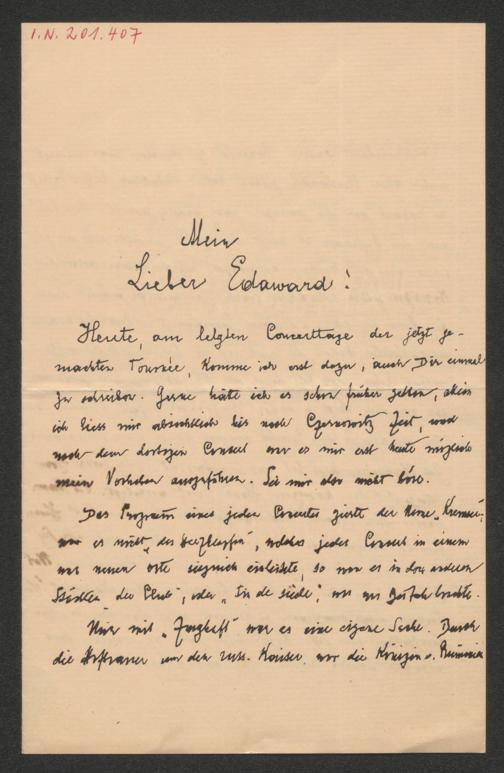 I.N. 201.407
Mein
Lieber Edaward!
Heute, am letzten Concerttage der jetzt ge-
machten Tournée, komme ich erst dazu, auch Dir einmal
zu schreiben. Gerne hätte ich es schon früher gethan, allein
ich liess mir absichtlich bis nach Czernowitz Zeit, und
nach dem dortigen Concert war es mir erst heute möglich
mein Vorhaben auszuführen. Sei mir also nicht böse.
Das Programm eines jeden Concertes zierte der Name „Kremser",
war es nicht „das Herzklopfen", welches jedes Concert in einem
uns neuen Orte einleitete, so war es in den anderen
Städten „der Club", oder „fin de siècle", was uns brachte.
Nur mit „Zaghaft" war es eine eigene Sache. Durch
die Hoftrauer um den russ. Kaiser, war die Königin v. Rumänien